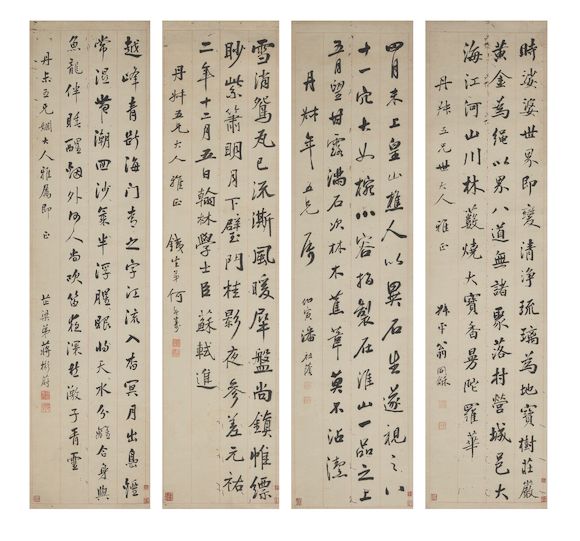 時娑婆世界即變清淨琉璃為地寶樹莊嚴
黃金為繩以界八道無諸聚落村營城邑大
海江河山川林藪燒大寶香曼陀羅華
丹林五兄世大人雅正
翁同龢
四月未上皇山樵人以異石告遂視之八
十一穴大如椀小容指製在淮山一品之上
五月望甘露滿石次林木蕉葦莫不沾潔
丹林年五兄屬
仰寅潘
雪消鴛瓦已流澌風暖犀盤尚鎮帷縹
眇紫簫明月下璧門桂影夜參差元祐
二年十二月五日翰林學士臣蘇軾進
丹林五兄大人雅正
鐵生弟何
越峰青斷海門青之字江流入杳冥月出鳥
常溼帶潮回沙氣半浮腥眼向天水分離合身與
魚龍伴睡醒烟外何人尚吹笛夜深愁激子胥靈
丹林五兄姻大人雅屬即正
弟蔣彬蔚